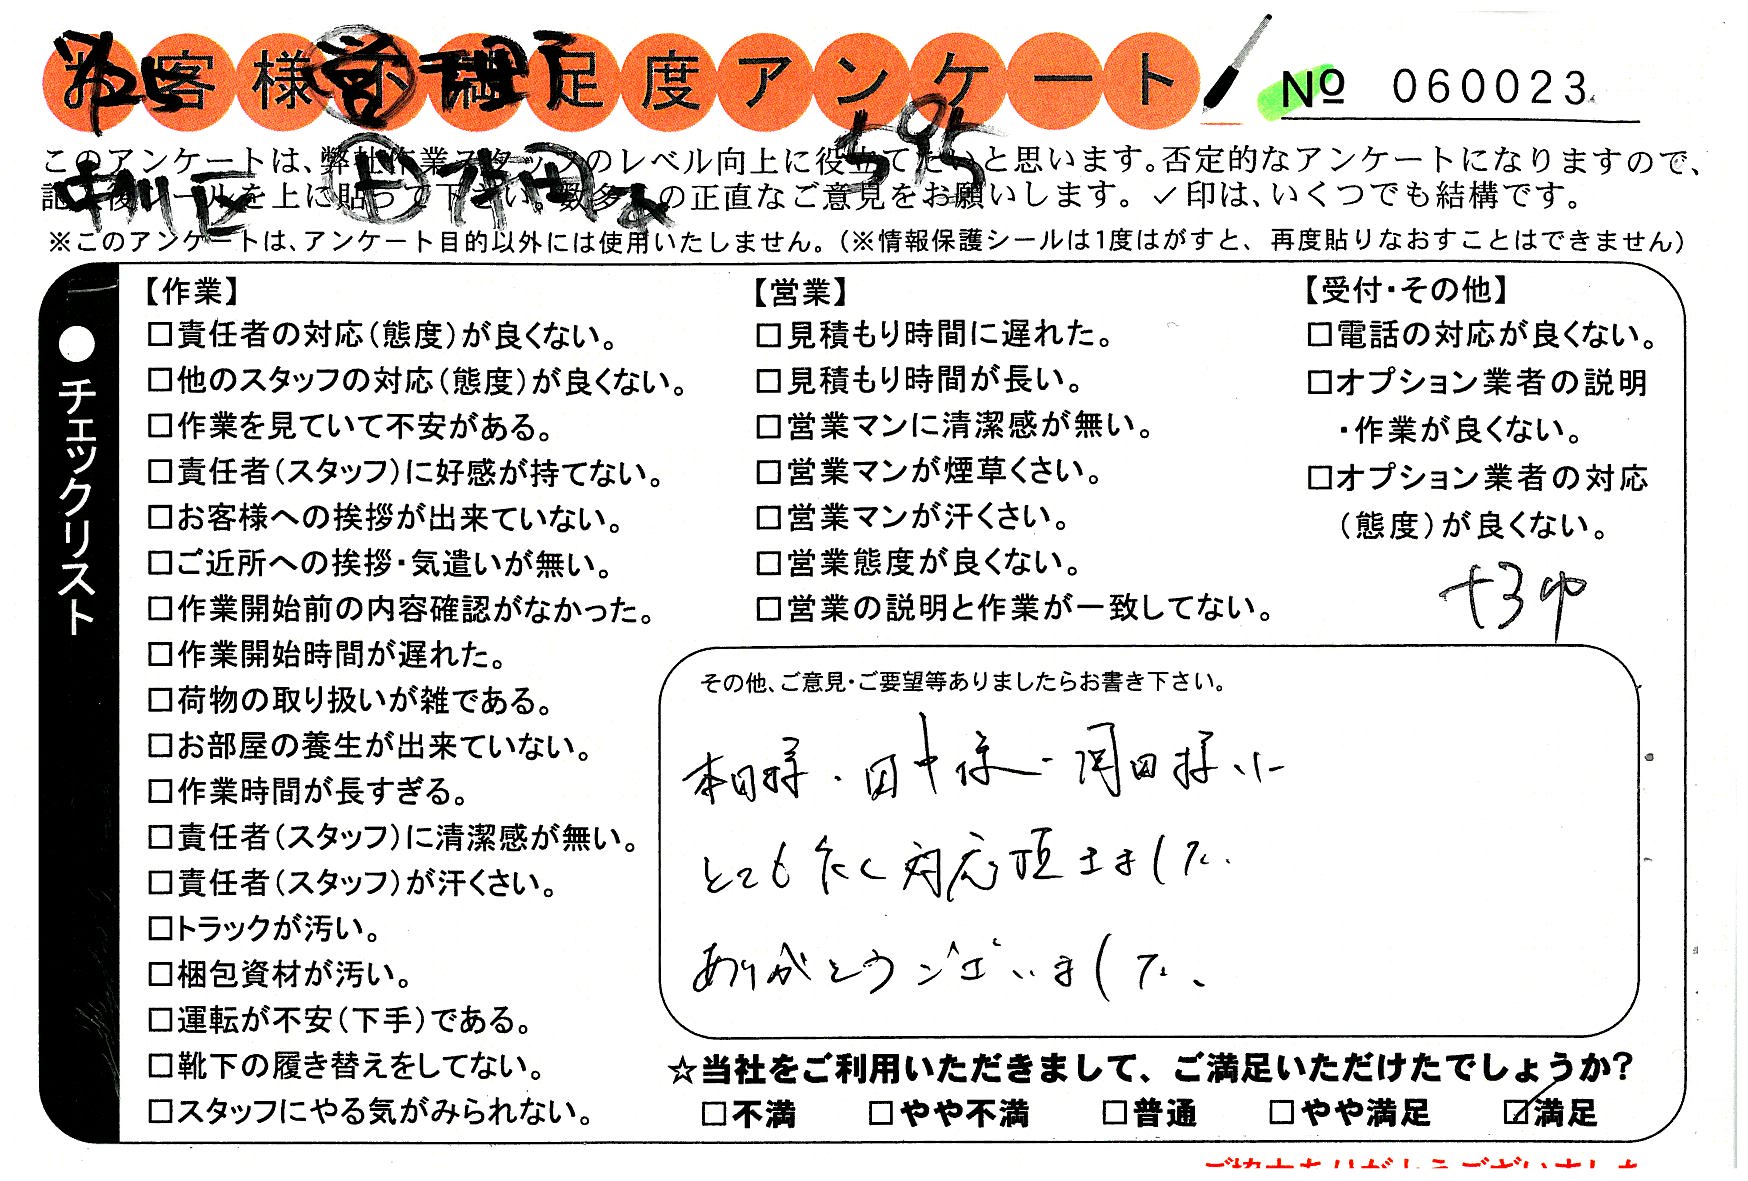 お客様不満足度アンケート
№ 060023
595
このアンケートは、弊社作業スタッフのレベル向上に役立てたいと思います。否定的なアンケートになりますので、
を上に貼って下さい。数多くの正直なご意見をお願いします。✓印は、いくつでも結構です。
※このアンケートは、アンケート目的以外には使用いたしません。(※情報保護シールは1度はがすと、再度貼りなおすことはできません)
●チェックリスト
【作業】
□責任者の対応(態度)が良くない。
□他のスタッフの対応(態度)が良くない。
□作業を見ていて不安がある。
□責任者(スタッフ)に好感が持てない。
□お客様への挨拶が出来ていない。
□ご近所への挨拶・気遣いが無い。
□作業開始前の内容確認がなかった。
□作業開始時間が遅れた。
□荷物の取り扱いが雑である。
□お部屋の養生が出来ていない。
□作業時間が長すぎる。
□責任者(スタッフ)に清潔感が無い。
□責任者(スタッフ)が汗くさい。
□トラックが汚い。
□梱包資材が汚い。
□運転が不安(下手)である。
□靴下の履き替えをしてない。
□スタッフにやる気がみられない。
【営業】
□見積もり時間に遅れた。
□見積もり時間が長い。
□営業マンに清潔感が無い。
□営業マンが煙草くさい。
□営業マンが汗くさい。
□営業態度が良くない。
□営業の説明と作業が一致してない。
【受付・その他】
□電話の対応が良くない。
□オプション業者の説明
・作業が良くない。
□オプション業者の対応
(態度)が良くない。
その他、ご意見・ご要望等ありましたらお書き下さい。
本田様・田中様・岡田様に
とても良く対応頂きました。
ありがとうございました。
☆当社をご利用いただきまして、ご満足いただけたでしょうか?
□不満 □やや不満 □普通 □やや満足 ☑満足
ご協力ありがとうございました